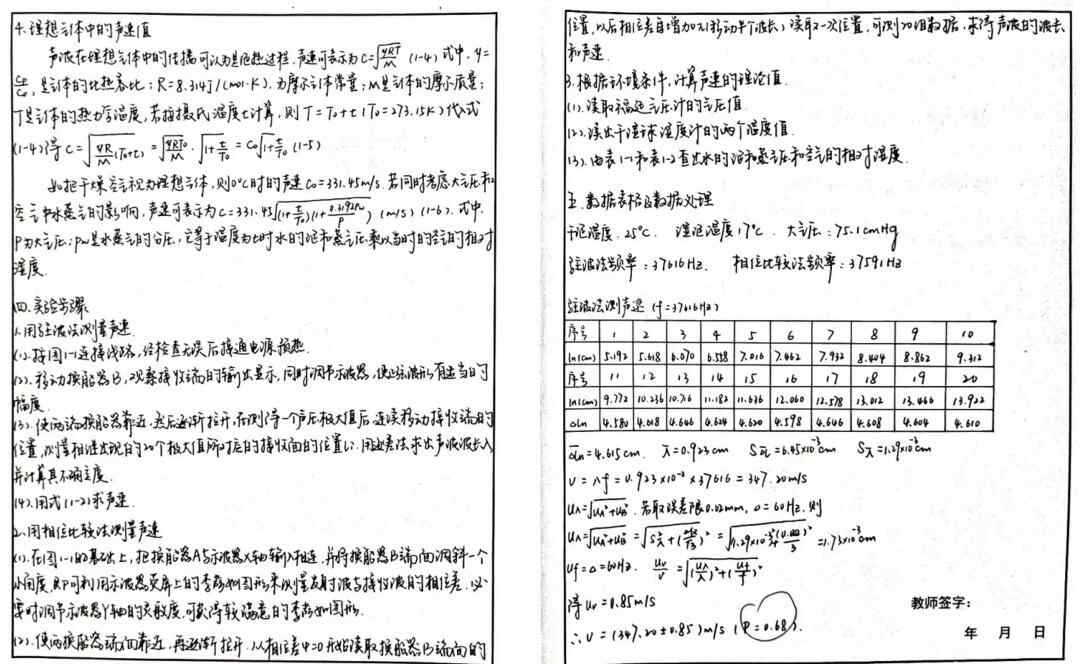 4.理想气体中的声速值
声波在理想气体中的传播可认为是绝热过程,声速可表示为C=√(γRT/M) (1-4) 式中,γ=
Cp/Cv,是气体的比热容比;R=8.314J/(mol·K),为摩尔气体常量;M是气体的摩尔质量;
T是气体的热力学温度,若按摄氏温度t计算,则T=T₀+t(T₀=273.15K)代入式
(1-4)得 C=√(γR/M(T₀+t))=√(γRT₀/M)·√(1+t/T₀)=C₀√(1+t/T₀) (1-5)
如把干燥空气视为理想气体,则0°C时的声速C₀=331.45m/s.若同时考虑大气压和
空气中水蒸气的影响,声速可表示为C=331.45√((1+t/T₀)(1+0.3192Pw/P)) (m/s) (1-6).式中,
P为大气压;Pw是水蒸气的分压,它等于温度为t时水的饱和蒸气压乘以当时的空气的相对
湿度.
四.实验步骤
1.用驻波法测量声速
(1).按图1-1连接线路,经检查无误后接通电源预热.
(2).移动换能器B,观察接收端的输出显示,同时调节示波器,使正弦波形有适当的
幅度.
(3).使两端换能器靠近,然后逐渐拉开,在测得一个声压极大值后,连续移动接收端的
位置,测量相继出现的20个极大值所对应的接收面的位置Li.用逐差法求出声波波长λ
并计算其不确定度.
(4).用式(1-2)求声速.
2.用相位比较法测量声速
(1).在图1-1的基础上,把换能器A与示波器X轴输入相连,并将换能器B端面调斜一个
小角度,即可利用示波器荧屏上的李萨如图形来测量发射波与接收波的相位差.必
要时调节示波器Y轴的灵敏度,可获得较满意的李萨如图形.
(2).使两换能器端面靠近,再逐渐拉开.从相位差φ=0开始读取换能器B端面的
位置,以后相位差每增加π(移动半个波长),读取一次位置,可测20组数据,求得声波的波长
和声速.
3.根据环境条件,计算声速的理论值.
(1).读取福廷气压计的气压值.
(2).读出干湿球温度计的两个温度值.
(3).由表1-1和表1-2查出水的饱和蒸气压和空气的相对湿度.
五.数据表格及数据处理
干泡温度:25°C. 湿泡温度:17°C. 大气压:75.1cmHg
驻波法频率:37616Hz. 相位比较法频率:37591Hz
驻波法测声速 (f=37616Hz)
序号 1 2 3 4 5 6 7 8 9 10
ln(cm) 5.192 5.618 6.070 6.558 7.016 7.462 7.932 8.404 8.862 9.312
序号 11 12 13 14 15 16 17 18 19 20
ln(cm) 9.772 10.236 10.716 11.182 11.636 12.060 12.578 13.012 13.466 13.922
Δln 4.580 4.618 4.646 4.624 4.620 4.598 4.646 4.608 4.604 4.610
Δln=4.615cm. λ=0.923cm S=6.45×10⁻³cm Sλ=1.29×10⁻³cm
v=λf=0.923×10⁻²×37616=347.20m/s
uλ=√(uA²+uB²).若取误差限0.02mm,Δ=60Hz.则
uλ=√(uA²+uB²)=√(Sλ²+(Δ仪/√3)²)=√(1.29×10⁻³+(0.002)²/3)=1.73×10⁻³cm
uf=Δ=60Hz. uv/v=√((uλ/λ)²+(uf/f)²)
得uv=0.85m/s
∴v=(347.20±0.85)m/s (P=0.68).
教师签字:
年 月 日